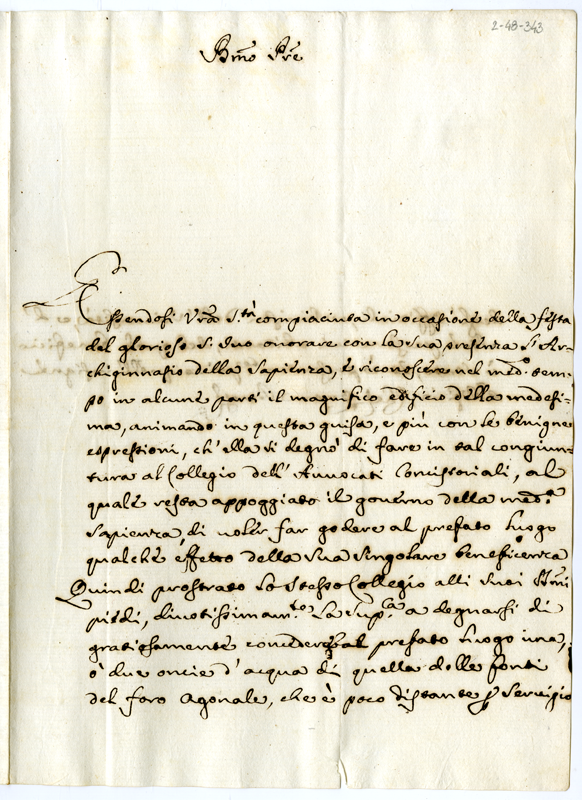 2-48-343
Bmõ Prẽ
Essendosi Vrã S.tà compiaciuta in occasione della festa
del glorioso S. Iuo onorare con la sua presenza l'Ar-
chiginnasio della Sapienza, e riconoscere nel med.º tem-
po in alcune parti il magnifico edificio della medesi-
ma, animando in questa guisa, e più con le benigne
espressioni, ch'ella si degnò di fare in tal congiun-
tura al Collegio dell' Auuocati Concistoriali, al
quale resta appoggiato il gouerno della med.ª
Sapienza, di uoler far godere al prefato luogo
qualche effetto della Sua Singolare beneficenza
Quindi prostrato lo stesso Collegio alli suoi SSmi
piedi, diuotissimam.te La Sup.ca a degnarsi di
gratiosamente concedere al prefato luogo una,
ò due oncie d'acqua di quella delle fonti
del foro Agonale, che è poco distante p Seruigio